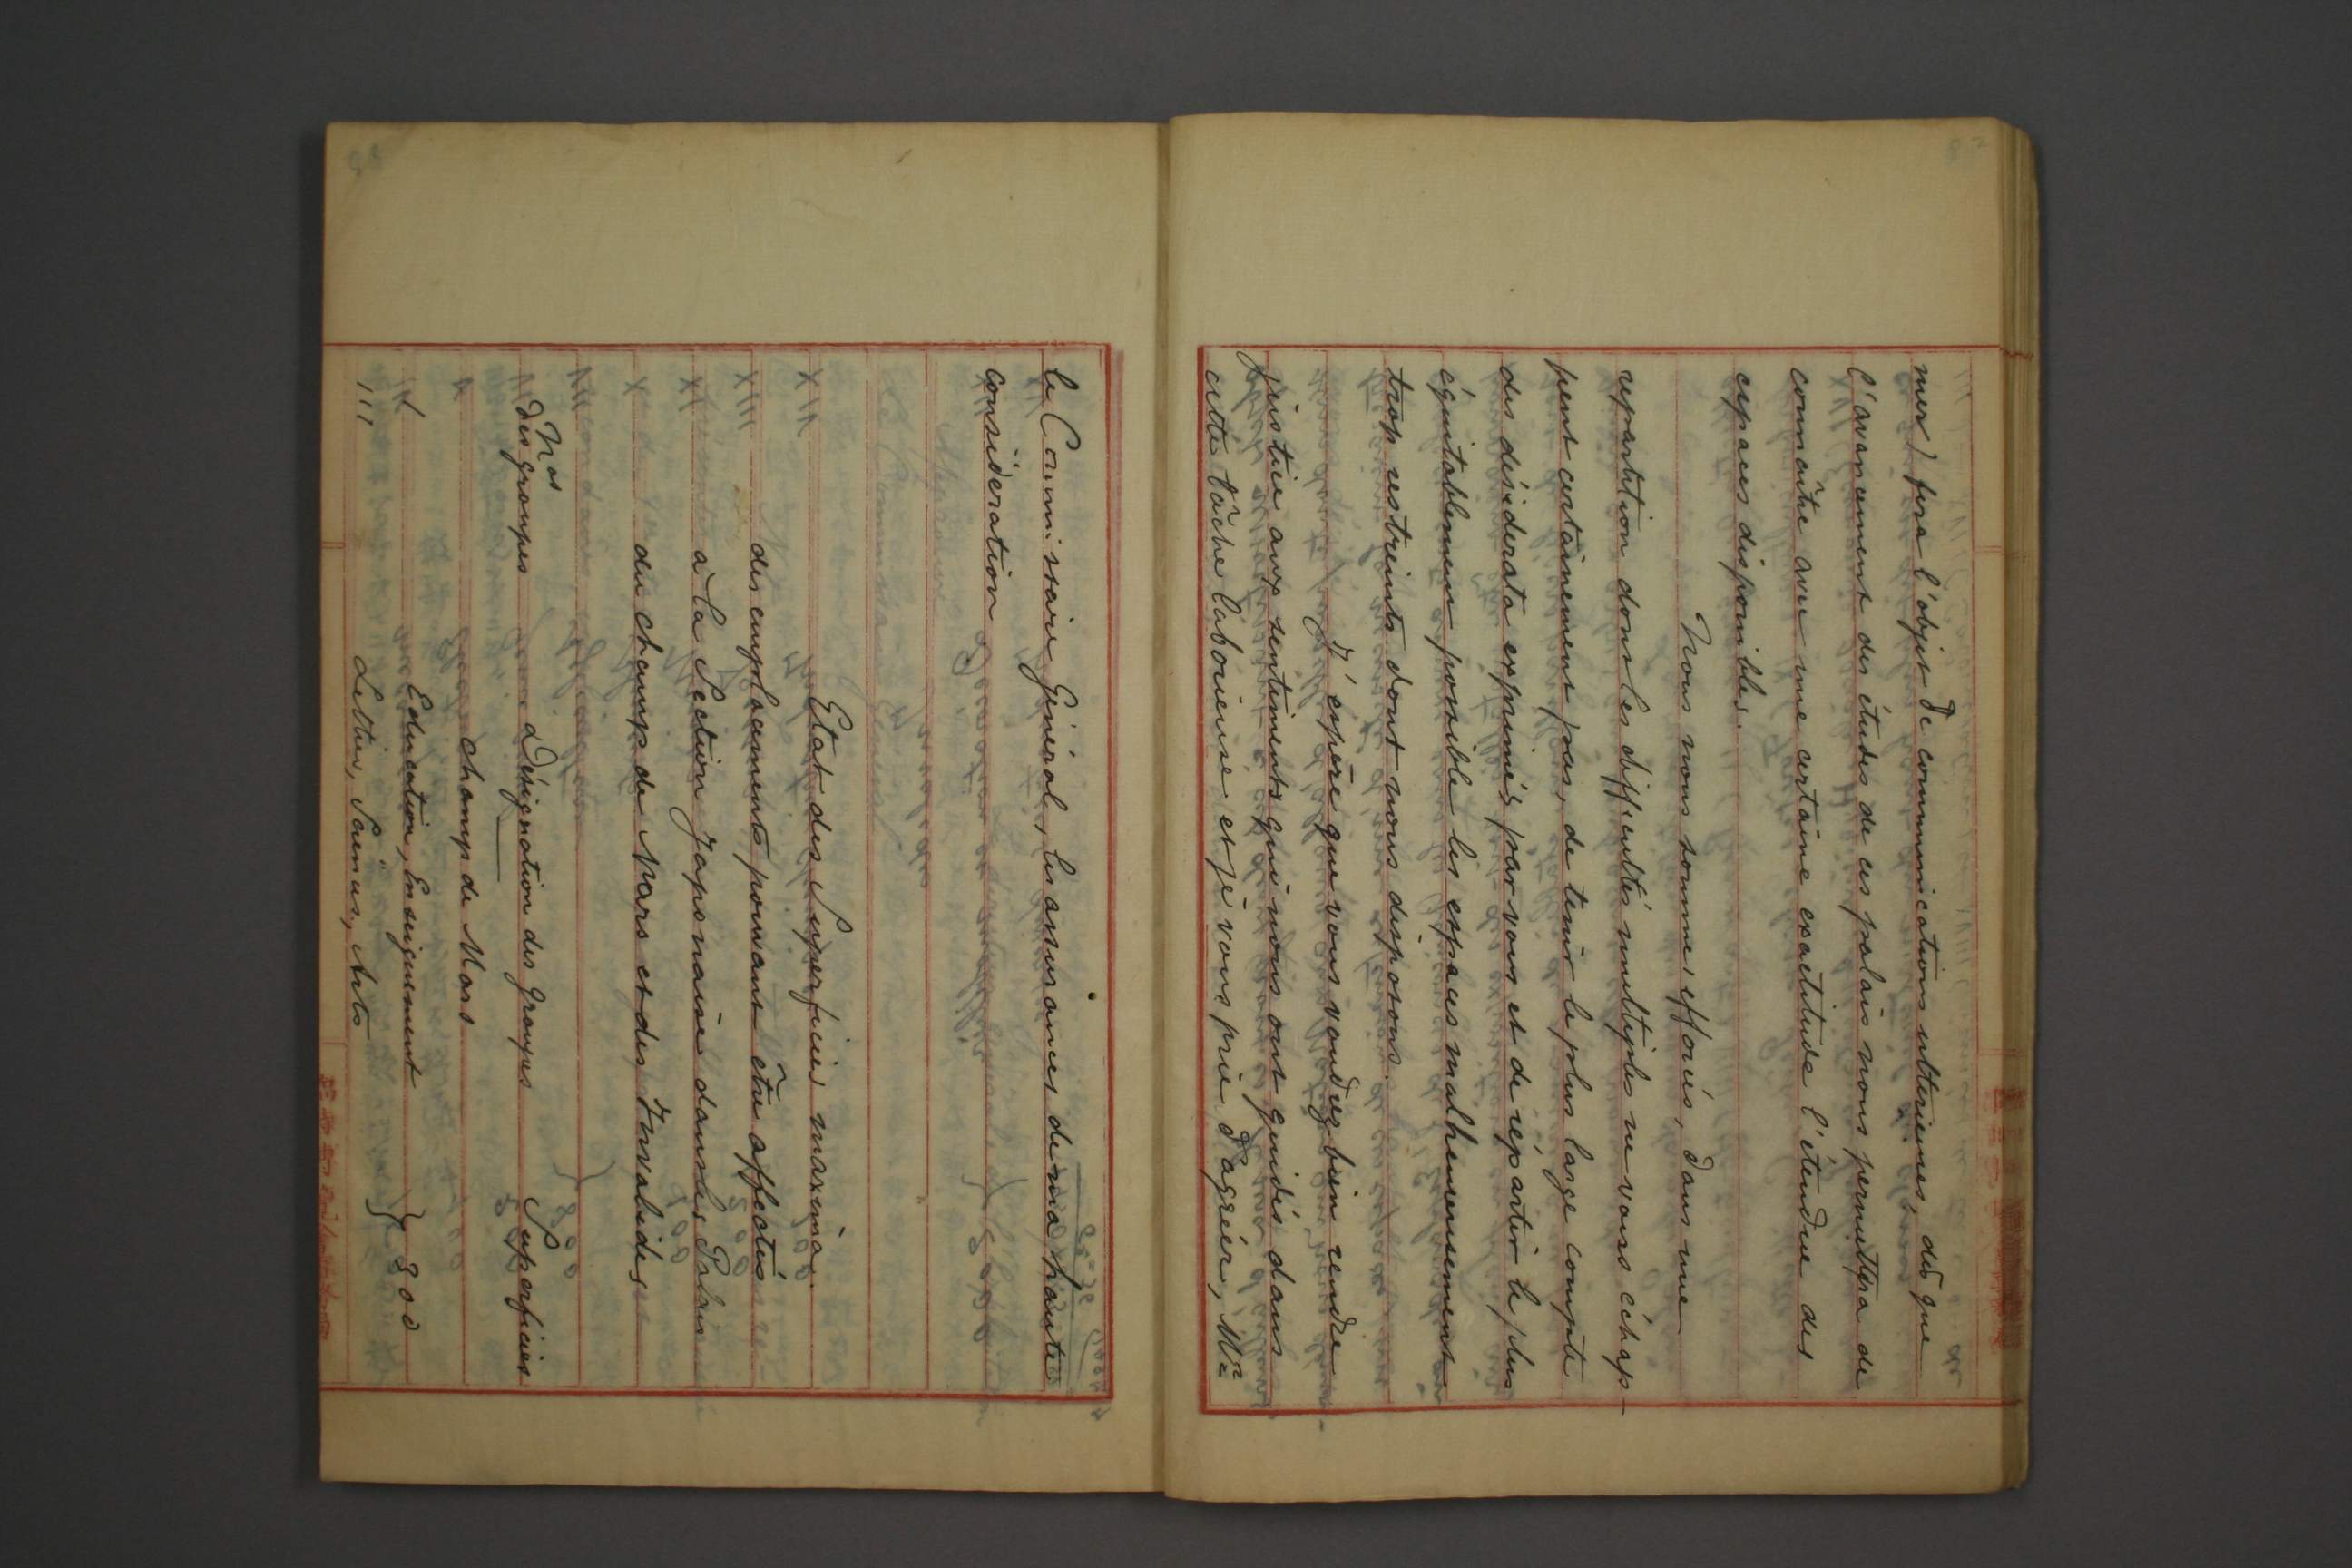 mer) fera l'objet de communications ultérieures, dès que
l'avancement des études de ces palais nous permettra de
connaître avec une certaine exactitude l'étendue des
espaces disponibles.
Nous nous sommes efforcés, dans une
repartition dont les difficultés multiples ne vous échap-
pent certainement pas, de tenir le plus large compte
des désiderata exprimés par vous et de répartir le plus
équitablement possible les espaces malheureusement
trop restreints dont nous disposons.
J'espère que vous voudrez bien rendre
justice aux sentiments qui nous ont guidés dans
cette tâche laborieuse et je vous prie d'agréer, Mr
le Commissaire Général, les assurances de ma haute
considération
Etat des Superficies maxima.
des emplacements pouvant être affectés
à la Section Japonaise dans les Palais
du champs de Mars et des Invalides
Nos
des groupes Désignation des groupes Superficies
champs de Mars
I Education, Enseignement } 800
III Lettres, Sciences, Arts